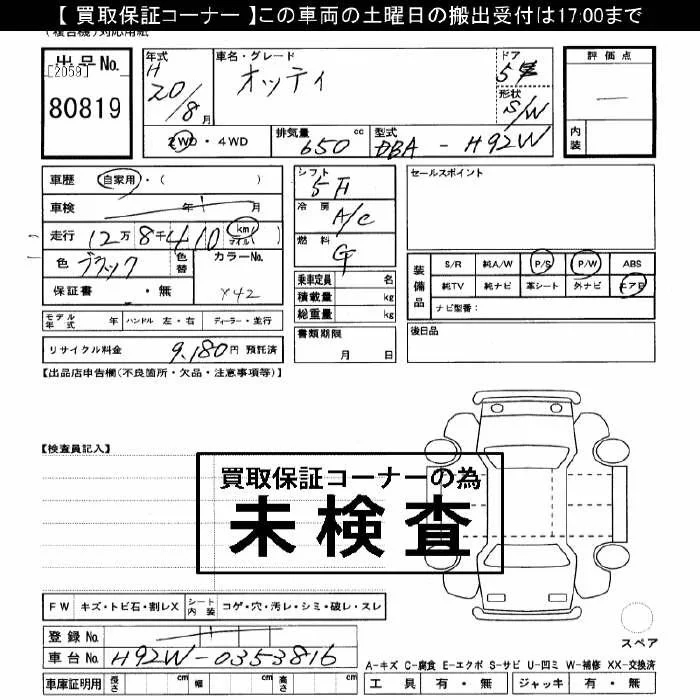 【 買取保証コーナー 】この車両の土曜日の搬出受付は17:00まで
(複合機)対応用紙
出品No.
[2059]
80819
年式 H 20/8月
車名・グレード オッティ
ドア 5
形状 S/W
評価点 —
内装
2WD・4WD
排気量 650 cc
型式 DBA - H92W
車歴 自家用・( )
車検 年 月
走行 12万8千410 km マイル( )
色 ブラック 色替 カラーNo. X42
保証書 ・無
モデル年式 年 ハンドル 左・右 ディーラー・並行
リサイクル料金 9,180円 預託済
シフト 5F
冷房 A/C
燃料 G
乗車定員 名
積載量 kg
総重量 kg
書類期限
月 日
セールスポイント
装備品
S/R 純A/W P/S P/W ABS
純TV 純ナビ 革シート 外ナビ エアB
ナビ型番:
後日品
【出品店申告欄(不良箇所・欠品・注意事項等)】
【検査員記入】
買取保証コーナーの為
未検査
FW キズ・トビ石・割レX シート内装 コゲ・穴・汚レ・シミ・破レ・スレ
登録No.
車台No. H92W-0353816
車庫証明用 長さ cm 幅 cm 高さ cm
スペア
A-キズ C-腐食 E-エクボ S-サビ U-凹ミ W-補修 XX-交換済
工具 有・無 ジャッキ 有・無